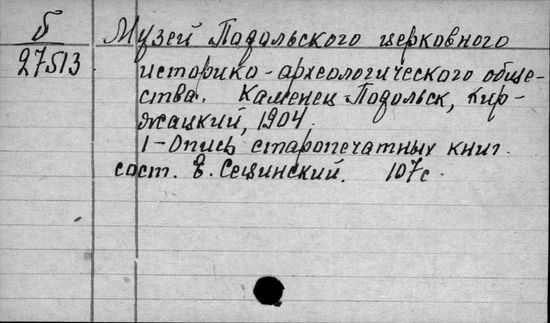 б
27513
Музей Подольского церковного
историко-археологического обще-
ства. Каменец-Подольск, Кир-
жацкий, 1904.
1-Опись старопечатных книг.
сост. Е. Сецинский. 107с.